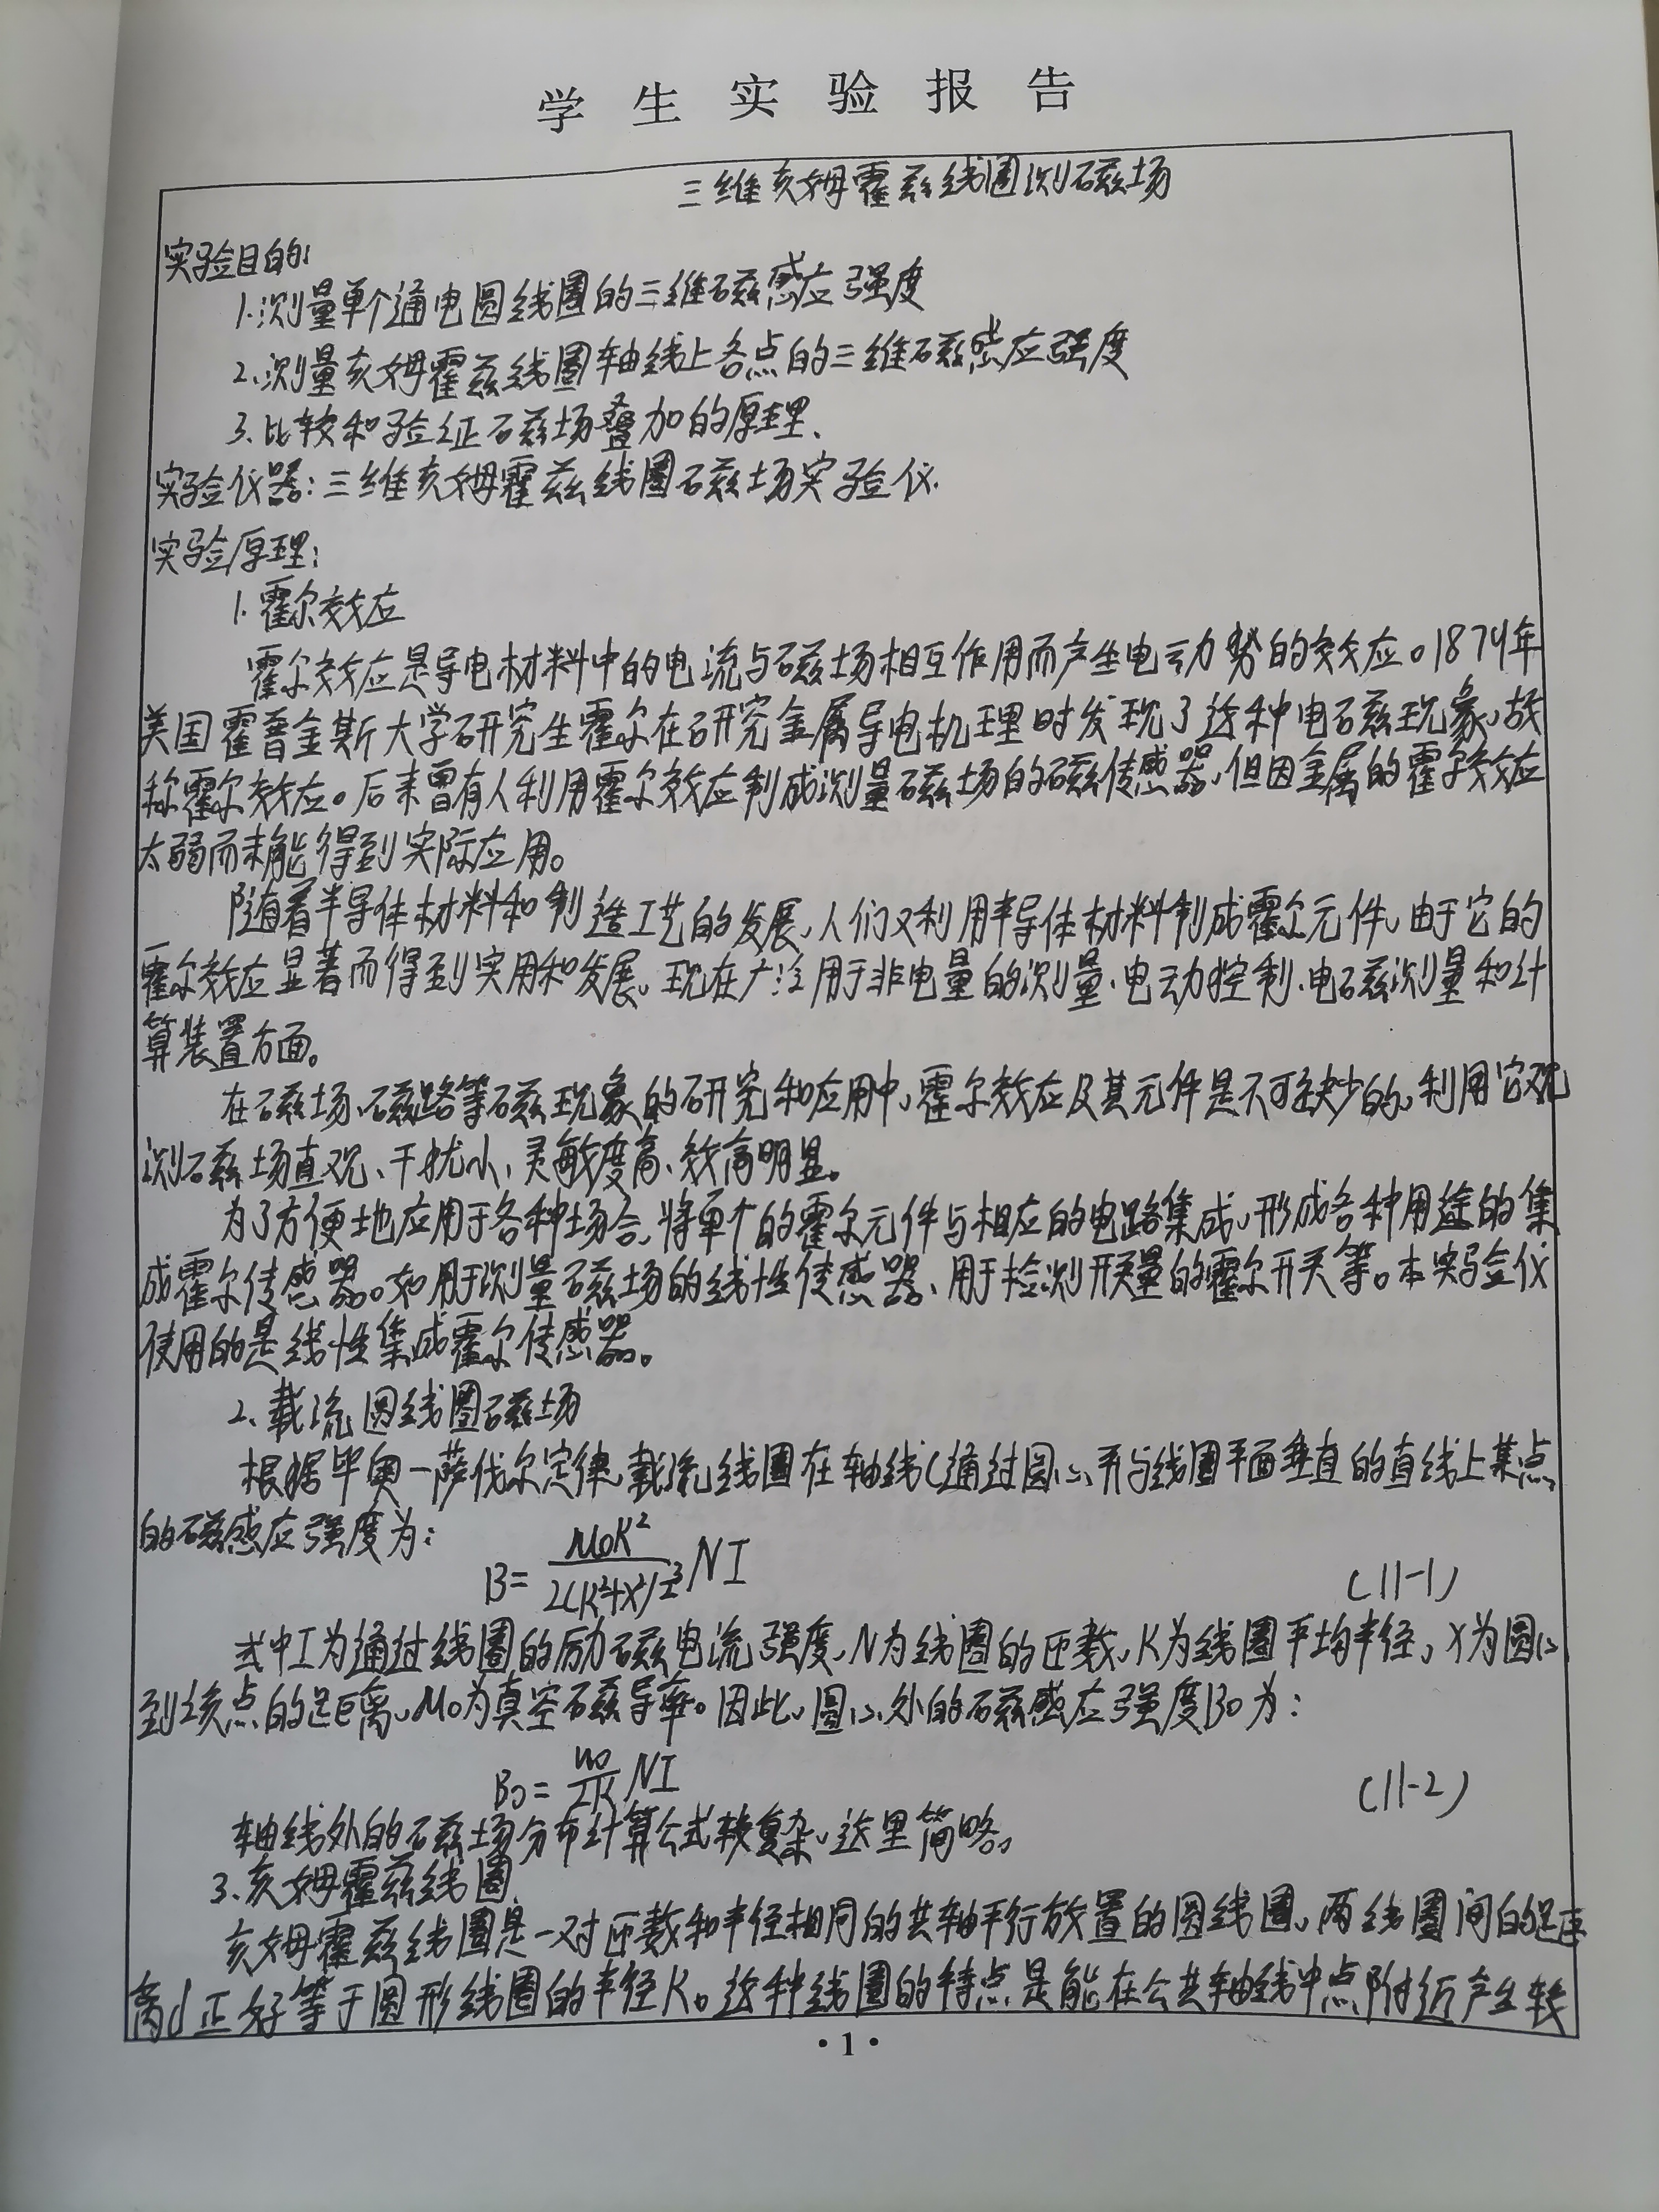 学生实验报告
三维亥姆霍兹线圈测磁场
实验目的:
1.测量单个通电圆线圈的三维磁感应强度
2.测量亥姆霍兹线圈轴线上各点的三维磁感应强度
3.比较和验证磁场叠加的原理.
实验仪器:三维亥姆霍兹线圈磁场实验仪.
实验原理:
1.霍尔效应
霍尔效应是导电材料中的电流与磁场相互作用而产生电动势的效应。1879年
美国霍普金斯大学研究生霍尔在研究金属导电机理时发现了这种电磁现象,故
称霍尔效应。后来曾有人利用霍尔效应制成测量磁场的磁传感器,但因金属的霍尔效应
太弱而未能得到实际应用。
随着半导体材料和制造工艺的发展,人们又利用半导体材料制成霍尔元件,由于它的
霍尔效应显著而得到实用和发展,现在广泛用于非电量的测量、电动控制、电磁测量和计
算装置方面。
在磁场、磁路等磁现象的研究和应用中,霍尔效应及其元件是不可缺少的,利用它观
测磁场直观、干扰小、灵敏度高、效高明显。
为了方便地应用于各种场合,将单个的霍尔元件与相应的电路集成,形成各种用途的集
成霍尔传感器。如用于测量磁场的线性传感器、用于检测开关量的霍尔开关等。本实验仪
使用的是线性集成霍尔传感器。
2、载流圆线圈磁场
根据毕奥一萨伐尔定律,载流线圈在轴线(通过圆心并与线圈平面垂直的直线上某点
的磁感应强度为:
B=μ0R²/2(R²+X²)^(3/2) NI (11-1)
式中I为通过线圈的励磁电流强度,N为线圈的匝数,R为线圈平均半径,X为圆心
到该点的距离,μ0为真空磁导率。因此,圆心处的磁感应强度B0为:
B0=μ0/2R NI (11-2)
轴线外的磁场分布计算公式较复杂,这里简略。
3、亥姆霍兹线圈
亥姆霍兹线圈是一对匝数和半径相同的共轴平行放置的圆线圈,两线圈间的距
离d正好等于圆形线圈的半径R。这种线圈的特点是能在公共轴线中点附近产生较
·1·